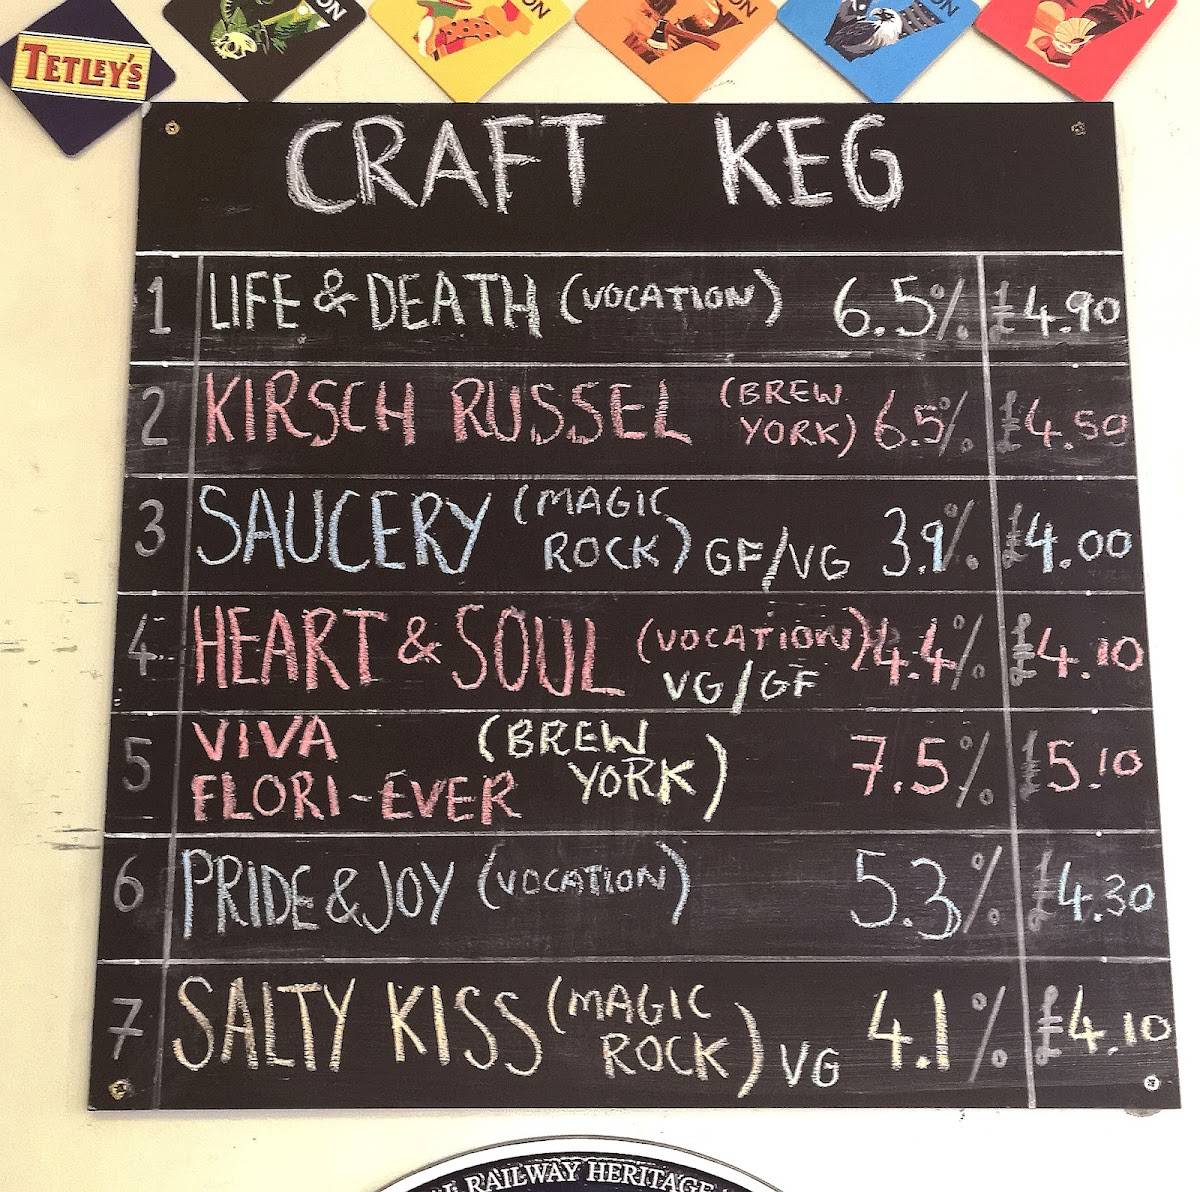 TETLEY'S
ON
ON
ON
ON
CRAFT KEG
1 LIFE & DEATH (VOCATION) 6.5% £4.90
2 KIRSCH RUSSEL (BREW YORK) 6.5% £4.50
3 SAUCERY (MAGIC ROCK) GF/VG 3.9% £4.00
4 HEART & SOUL (VOCATION) VG/GF 4.4% £4.10
5 VIVA FLORI-EVER (BREW YORK) 7.5% £5.10
6 PRIDE & JOY (VOCATION) 5.3% £4.30
7 SALTY KISS (MAGIC ROCK) VG 4.1% £4.10
RAILWAY HERITAGE